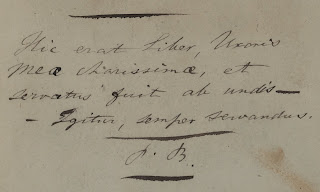 Hic erat Liber, Uxoris
meæ charissimæ, et
servatus fuit ab undis —
— Igitur, semper servandus.
J. B.